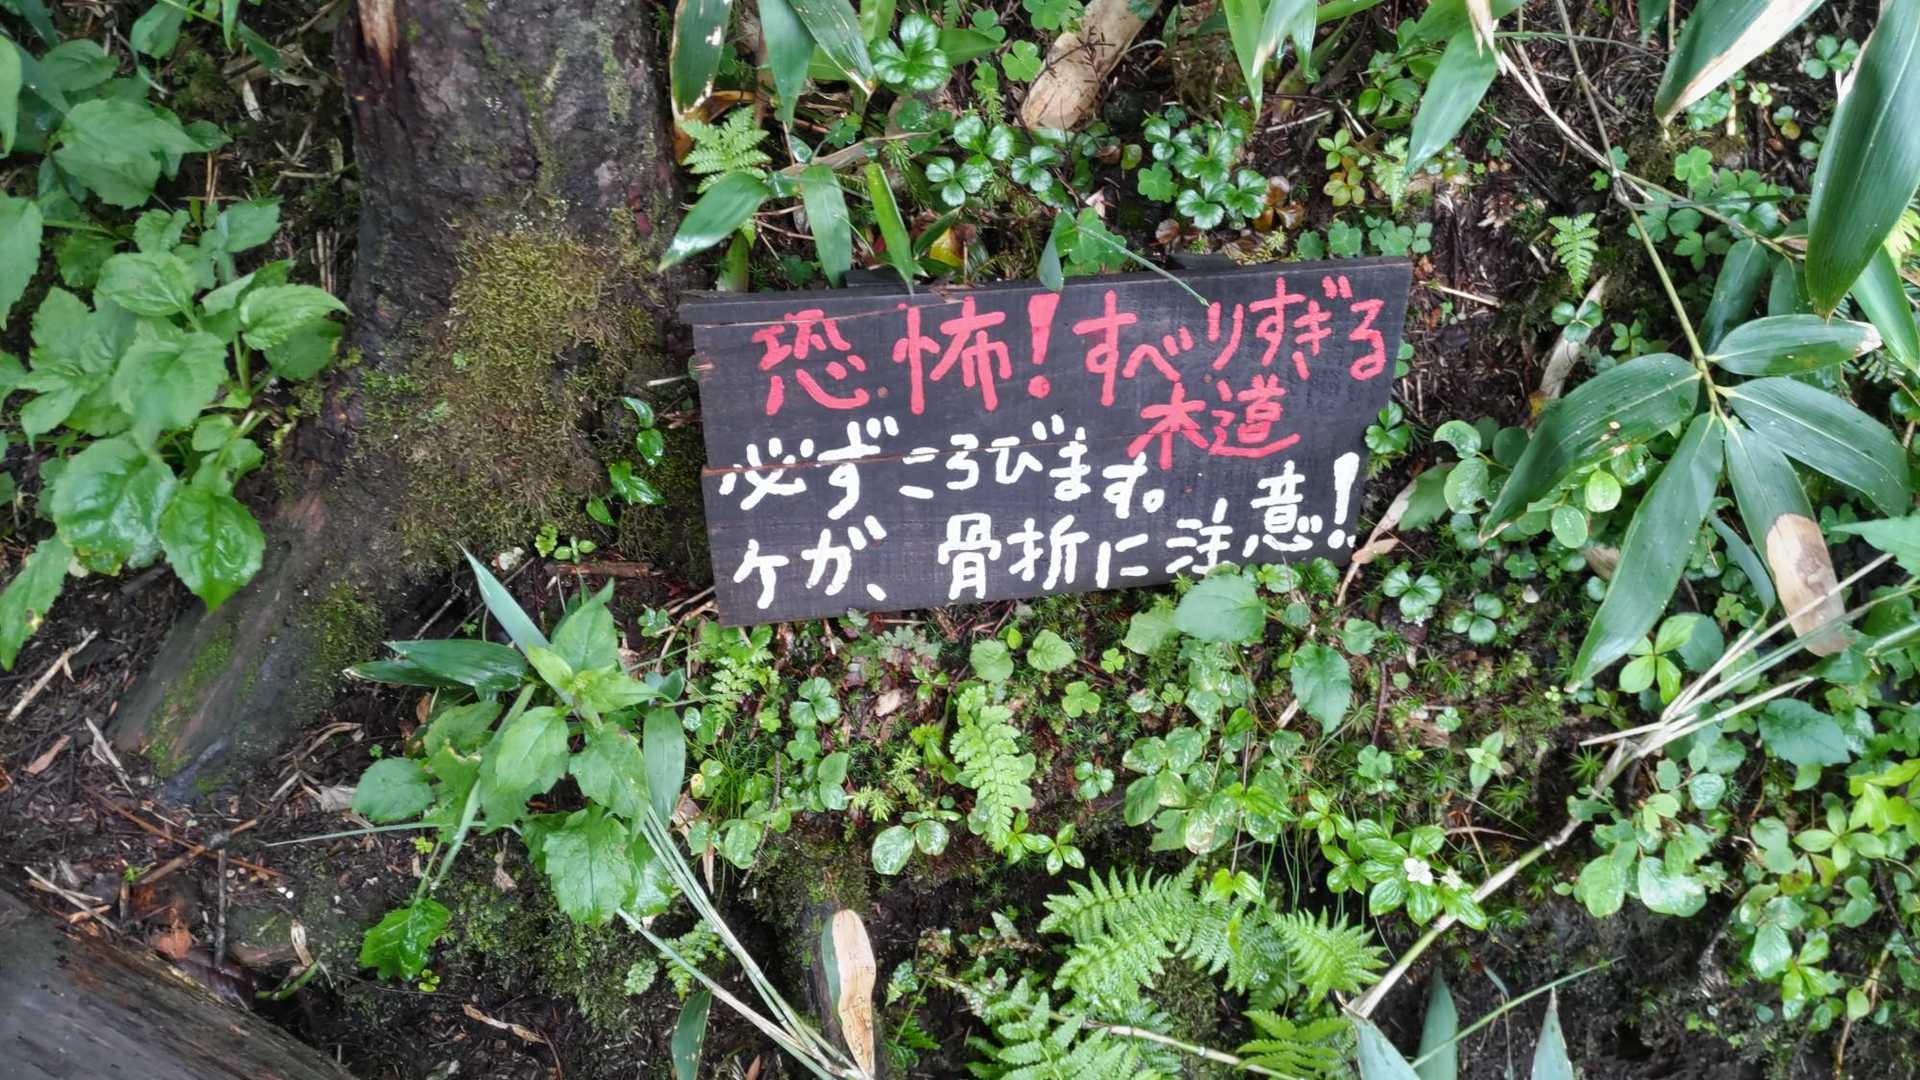 恐怖!すべりすぎる
木道
必ずころびます。
ケガ、骨折に注意!